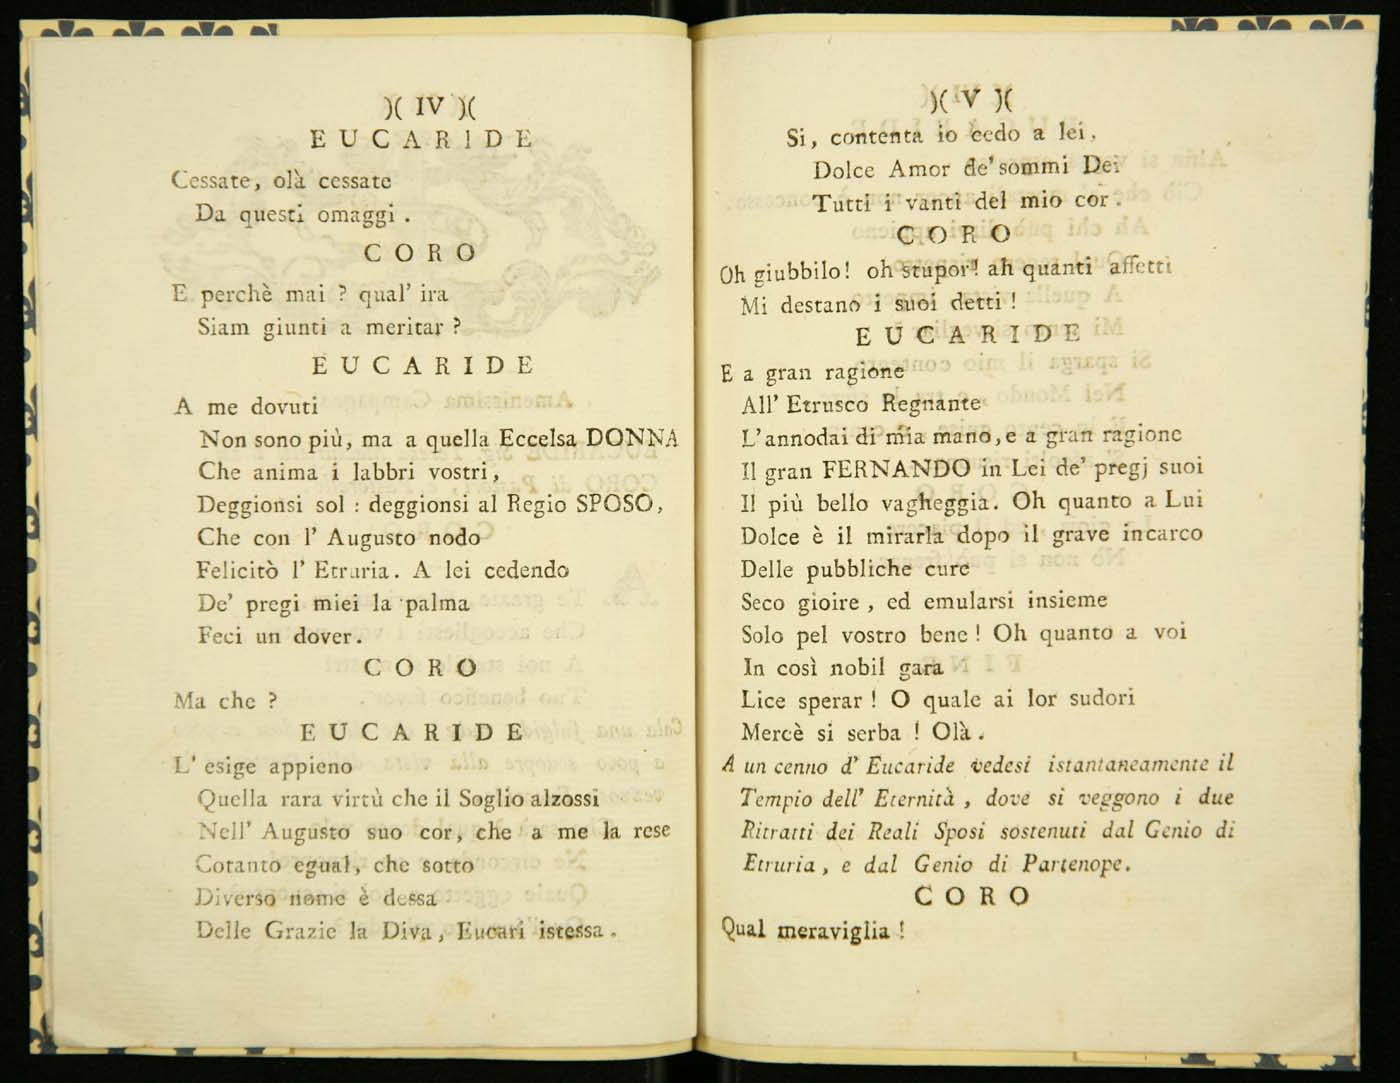 )( IV )(
EUCARIDE
Cessate, olà cessate
Da questi omaggi .
CORO
E perchè mai ? qual' ira
Siam giunti a meritar ?
EUCARIDE
A me dovuti
Non sono più, ma a quella Eccelsa DONNA
Che anima i labbri vostri,
Deggionsi sol : deggionsi al Regio SPOSO,
Che con l' Augusto nodo
Felicitò l' Etruria. A lei cedendo
De' pregi miei la palma
Feci un dover.
CORO
Ma che ?
EUCARIDE
L' esige appieno
Quella rara virtù che il Soglio alzossi
Nell' Augusto suo cor, che a me la rese
Cotanto egual, che sotto
Diverso nome è dessa
Delle Grazie la Diva, Eucari istessa.
)( V )(
Si, contenta io cedo a lei,
Dolce Amor de' sommi Dei
Tutti i vanti del mio cor.
CORO
Oh giubbilo! oh stupor! ah quanti affetti
Mi destano i suoi detti !
EUCARIDE
E a gran ragione
All' Etrusco Regnante
L'annodai di mia mano, e a gran ragione
Il gran FERNANDO in Lei de' pregj suoi
Il più bello vagheggia. Oh quanto a Lui
Dolce è il mirarla dopo il grave incarco
Delle pubbliche cure
Seco gioire, ed emularsi insieme
Solo pel vostro bene ! Oh quanto a voi
In così nobil gara
Lice sperar ! O quale ai lor sudori
Mercè si serba ! Olà.
A un cenno d' Eucaride vedesi istantaneamente il
Tempio dell' Eternità, dove si veggono i due
Ritratti dei Reali Sposi sostenuti dal Genio di
Etruria, e dal Genio di Partenope.
CORO
Qual meraviglia !